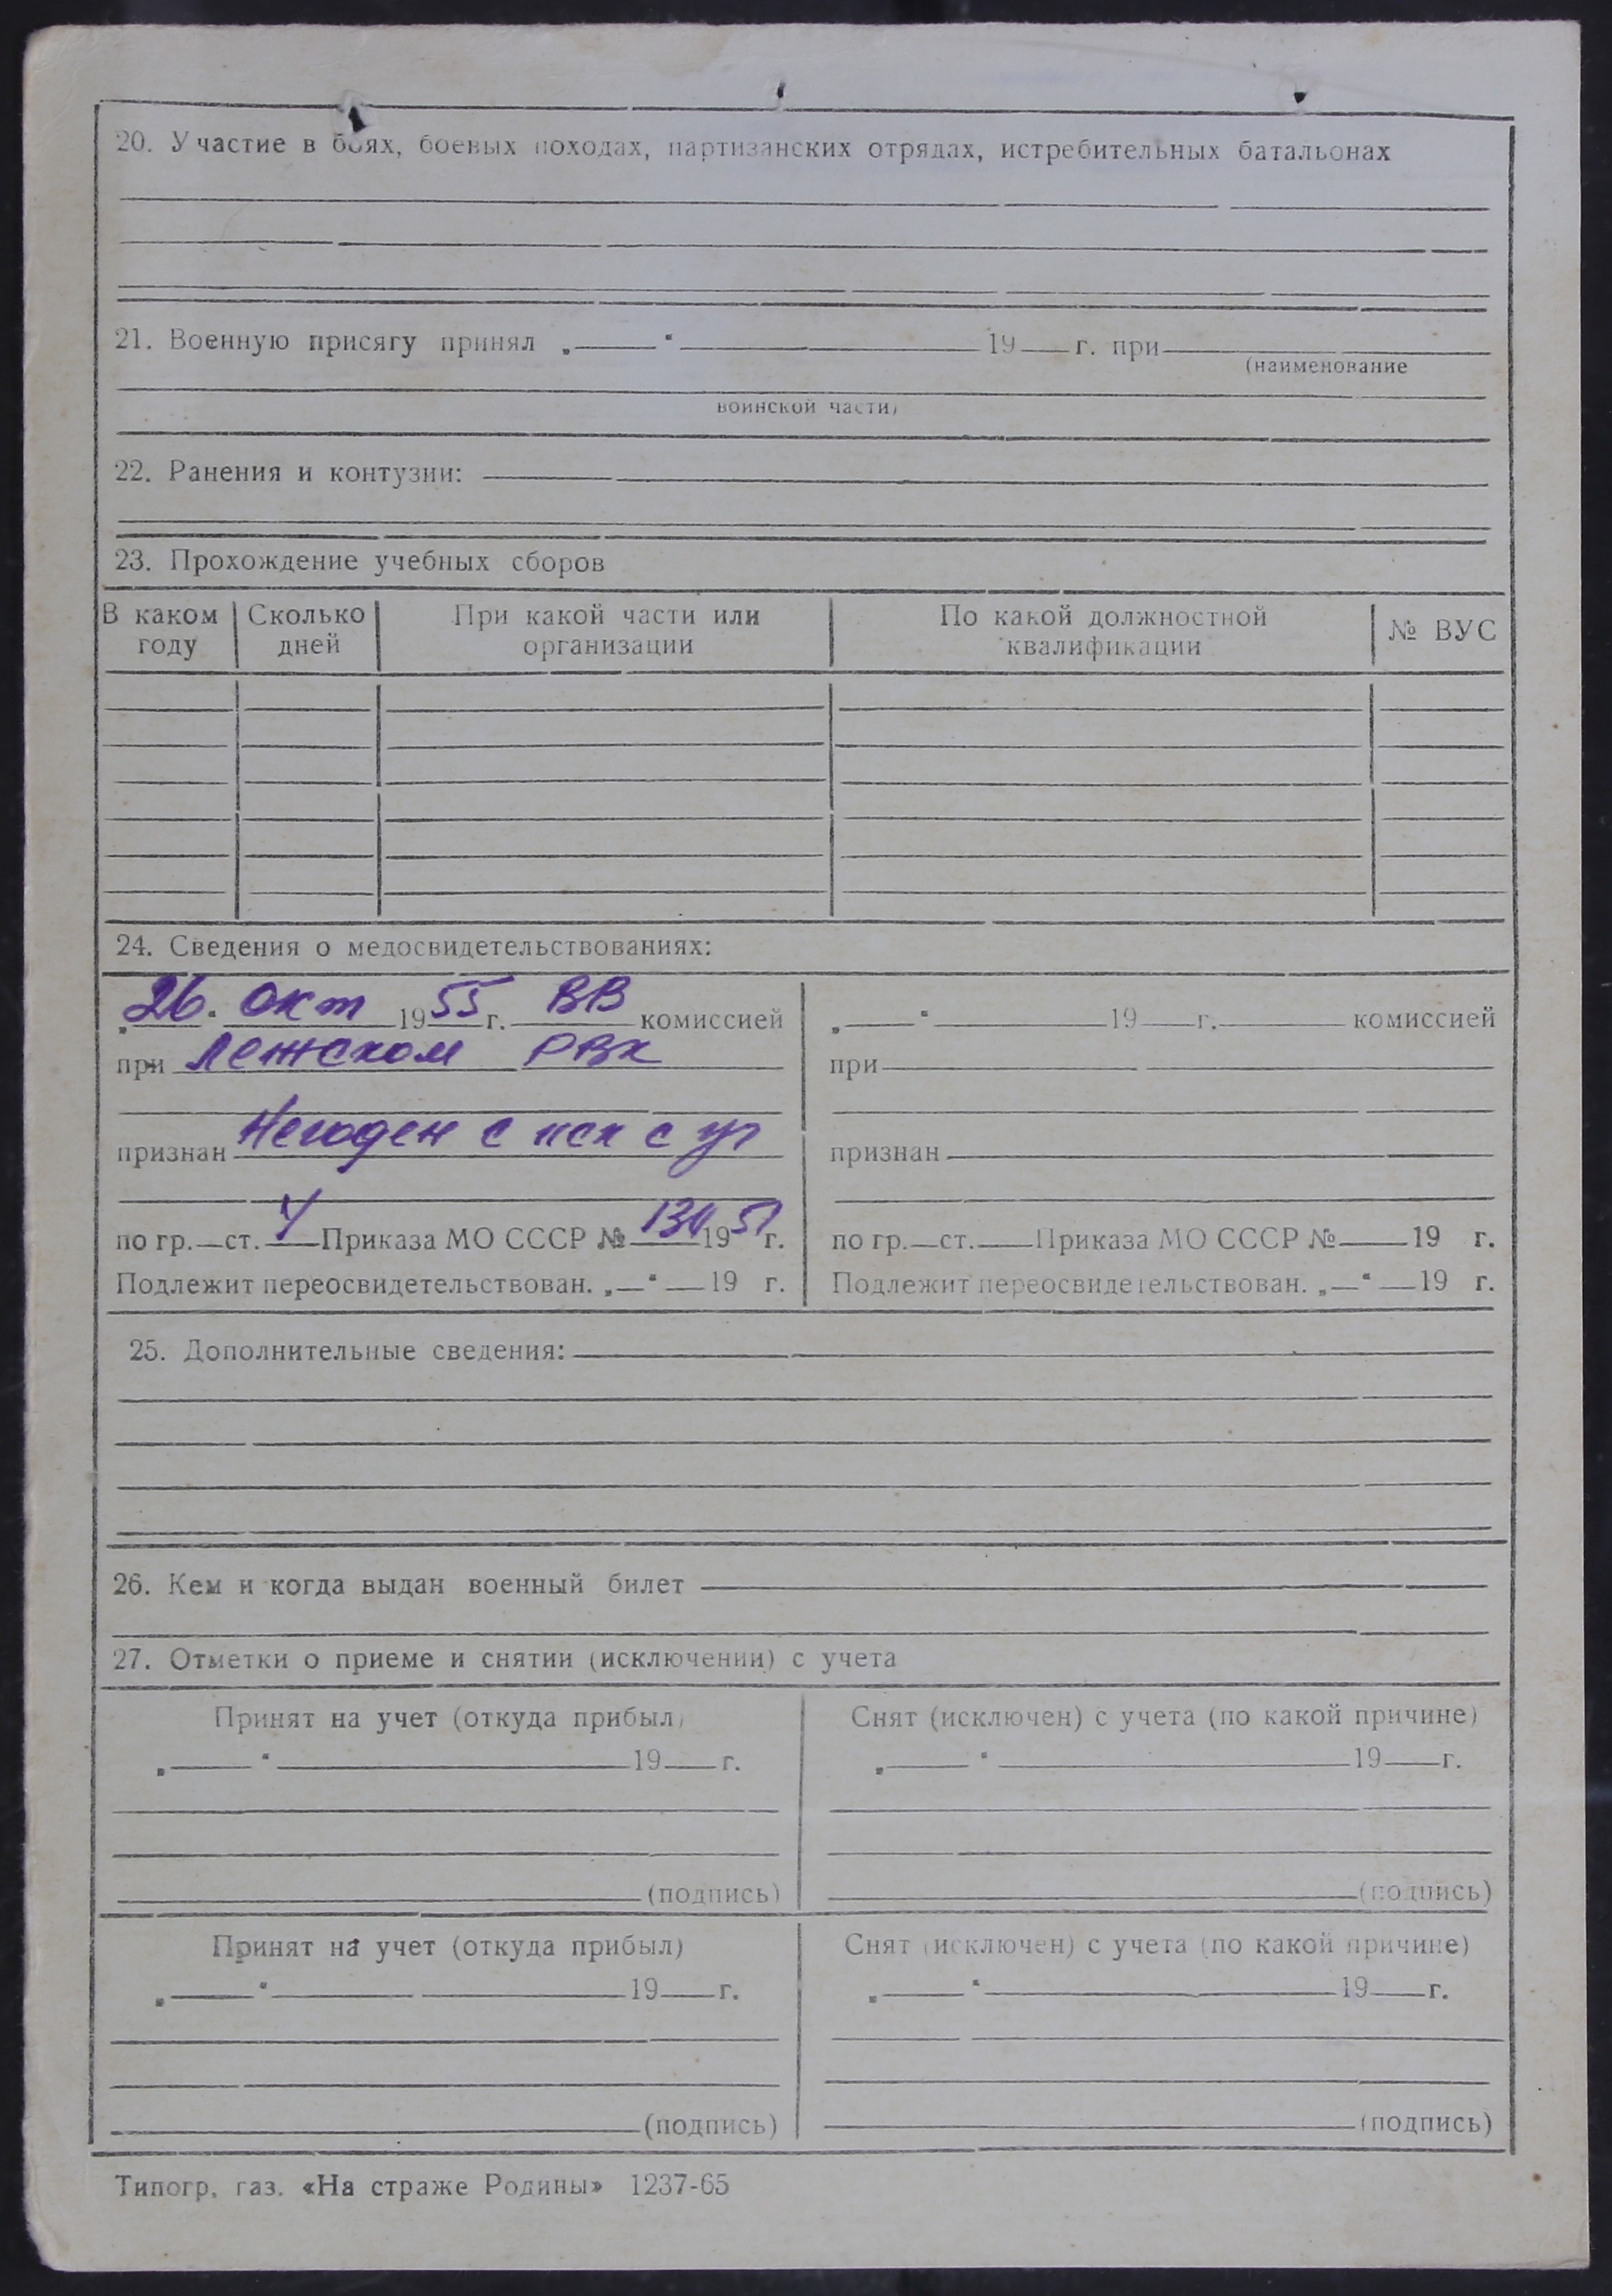 20. Участие в боях, боевых походах, партизанских отрядах, истребительных батальонах
21. Военную присягу принял „ “ 19 г. при
(наименование
воинской части)
22. Ранения и контузии:
23. Прохождение учебных сборов
В каком году Сколько дней При какой части или организации По какой должностной квалификации № ВУС
24. Сведения о медосвидетельствованиях:
„26“ окт 1955 г. ВВ комиссией
при Лежском РВК
признан Негоден с иск с уч
по гр. ст. 4 Приказа МО СССР № 130 1951 г.
Подлежит переосвидетельствован. „ “ 19 г.
„ “ 19 г. комиссией
при
признан
по гр. ст. Приказа МО СССР № 19 г.
Подлежит переосвидетельствован. „ “ 19 г.
25. Дополнительные сведения:
26. Кем и когда выдан военный билет
27. Отметки о приеме и снятии (исключении) с учета
Принят на учет (откуда прибыл)
„ “ 19 г.
(подпись)
Снят (исключен) с учета (по какой причине)
„ “ 19 г.
(подпись)
Принят на учет (откуда прибыл)
„ “ 19 г.
(подпись)
Снят (исключен) с учета (по какой причине)
„ “ 19 г.
(подпись)
Типогр. газ. «На страже Родины» 1237-65